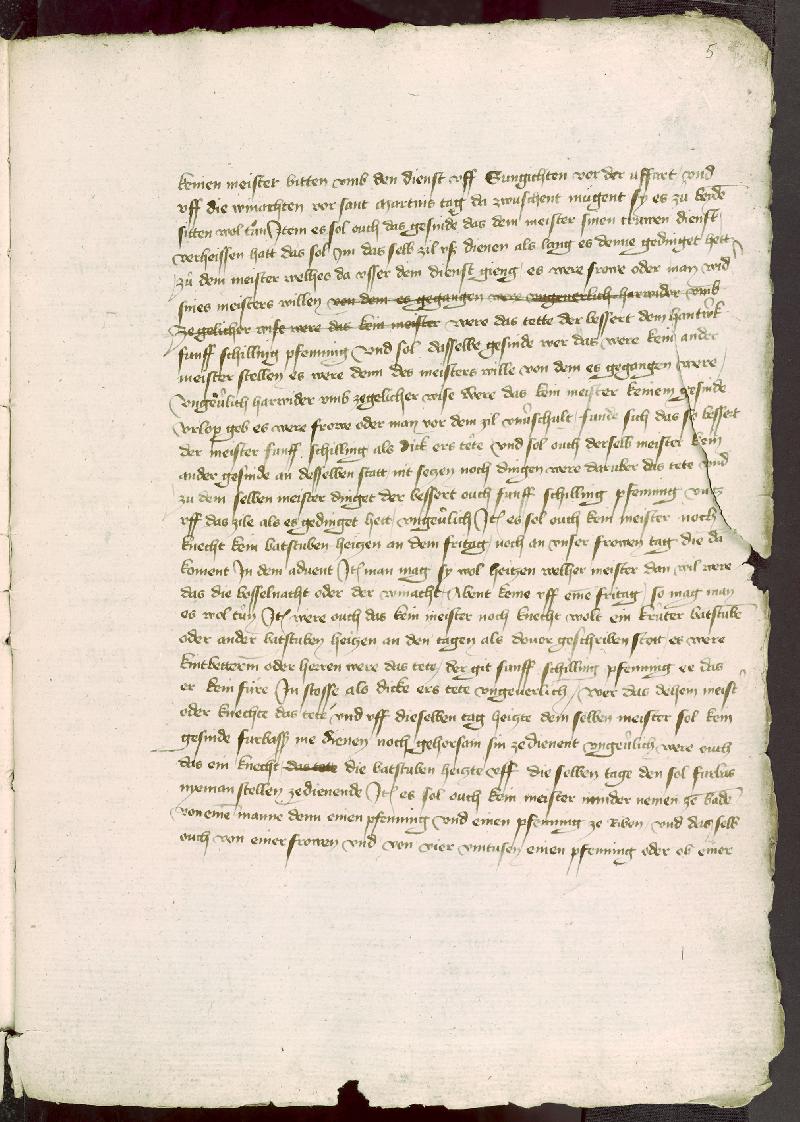 5
keinen meister bitten vmb den dienst vff Sungichten vor der uffart vnd
vff die winachten vor sant martins tag da zwuschent mugent sy es zů beide
sitten wol tůn Item es sol ouch das gesinde das dem meister sinen truwen dienst
verheissen hatt das sol Im das selb zil vs dienen als lang es denne gedinget hett
zů dem meister welhes da vsser dem dienst gieng es were frowe oder man wid
sines meisters willen von dem es gegangen were vngeuerlich harwider vmb
zegelicher wise were das kein meister were das tette der bessert dem hantwk
funff schilling pfenning vnd sol dasselbe gesinde wer das were kein ander
meister stellen es were denn des meisters wille von dem es gegangen were
vngeuͤlich harwider vmb zegelicher wise Were das kein meister keinem gesinde
vrlop geb es were frowe oder man vor dem zil vnuͤschult funde sich das so bessert
der meister funff schilling als dick ers tete vnd sol ouch derselb meister kein
ander gesinde an desselben statt nit setzen noch dingen were daruber das tete vnd
zů dem selben meister dinget der bessert ouch funff schilling pfenning vntz
vff das zile als es gedinget hett vngeuͤlich It es sol ouch kein meister noch
knecht kein batstuben heitzen an dem fritag noch an vnser frowen tag die da
koment In dem aduent It man mag sy wol heitzen welher meister dan wil were
das die bosselnacht oder der winacht Abent keme vff eine fritag so mag man
es wol tůn It were ouch das kein meister noch knecht wolt ein krůter batstube
oder ander batstuben heitzen an den tagen als douor geschriben stott es were
kintbetterin oder herren were das tete der git funff schilling pfenning ee das
er kein fure In stosse als dicke ers tete vngeuerlich wer das dehein meist
oder knechte das tete vnd vff dieselben tag heitzte dem selben meister sol kein
gesinde furbass me dienen noch gehorsam sin zedienent vngeuͤlich were ouch
das ein knecht das tete die batstuben heitzte vff die selben tage den sol furbas
nyeman stellen zedienende It es sol ouch kein meister minder nemen ze bade
von eine manne denn einen pfenning vnd einen pfenning ze Riben vnd das selb
ouch von einer frowen vnd von vier einen pfenning oder ob einer